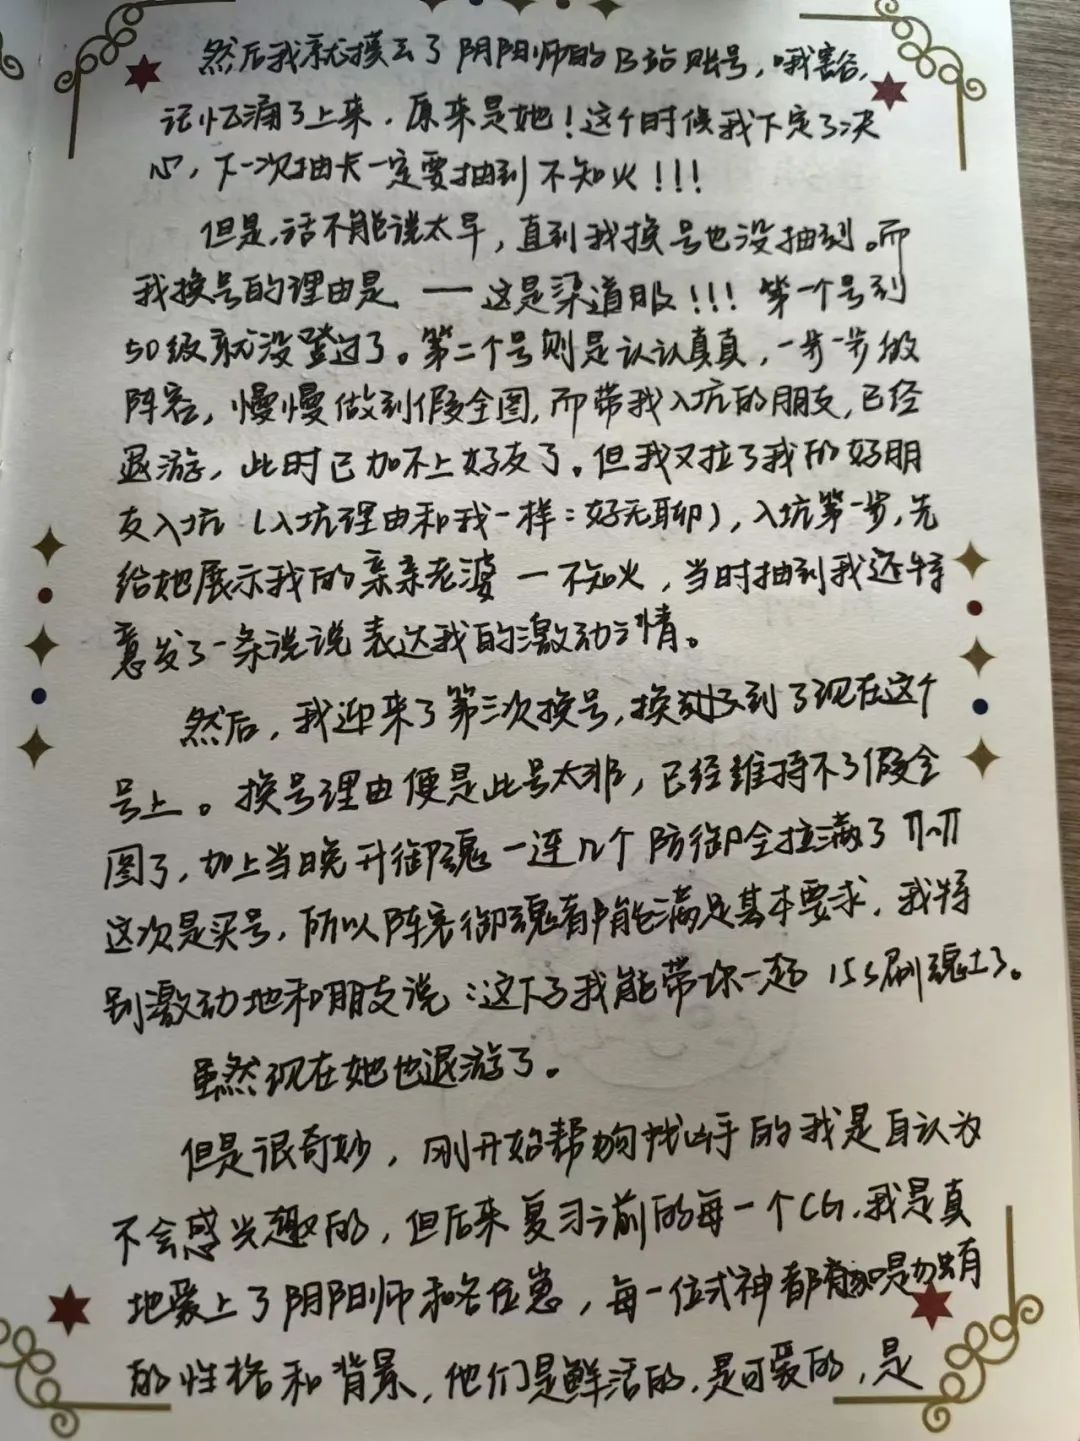 然后我就摸去了阴阳师的B站账号，哦害谷，
记忆涌了上来，原来是她！这个时候我下定了决
心，下一次抽卡一定要抽到不知火！！！
但是，话不能说太早，直到我换号也没抽到。而
我换号的理由是——这是渠道服！！！第一个号到
50级就没登过了。第二个号则是认认真真，一步一步做
阵容，慢慢做到假全图，而带我入坑的朋友，已经
退游，此时已加不上好友了。但我又拉了我的好朋
友入坑（入坑理由和我一样：好无聊），入坑第一步，先
给她展示我的亲亲老婆—不知火，当时抽到我还特
意发了一条说说表达我的激动之情。
然后，我迎来了第三次换号，换到了现在这个
号上。换号理由便是此号太非，已经维持不了假全
图了，加上当晚升御魂一连几个防御全拉满了ΠへΠ
这次是买号，所以阵容御魂都能满足基本要求，我特
别激动地和朋友说：这下子我能带你一起15s刷魂土了。
虽然现在她也退游了。
但是很奇妙，刚开始帮狗找凶手的我是自认为
不会感兴趣的，但后来复习之前的每一个CG，我是真
地爱上了阴阳师和各位崽，每一位式神都有独有
的性格和背景，他们是鲜活的，是可爱的，是